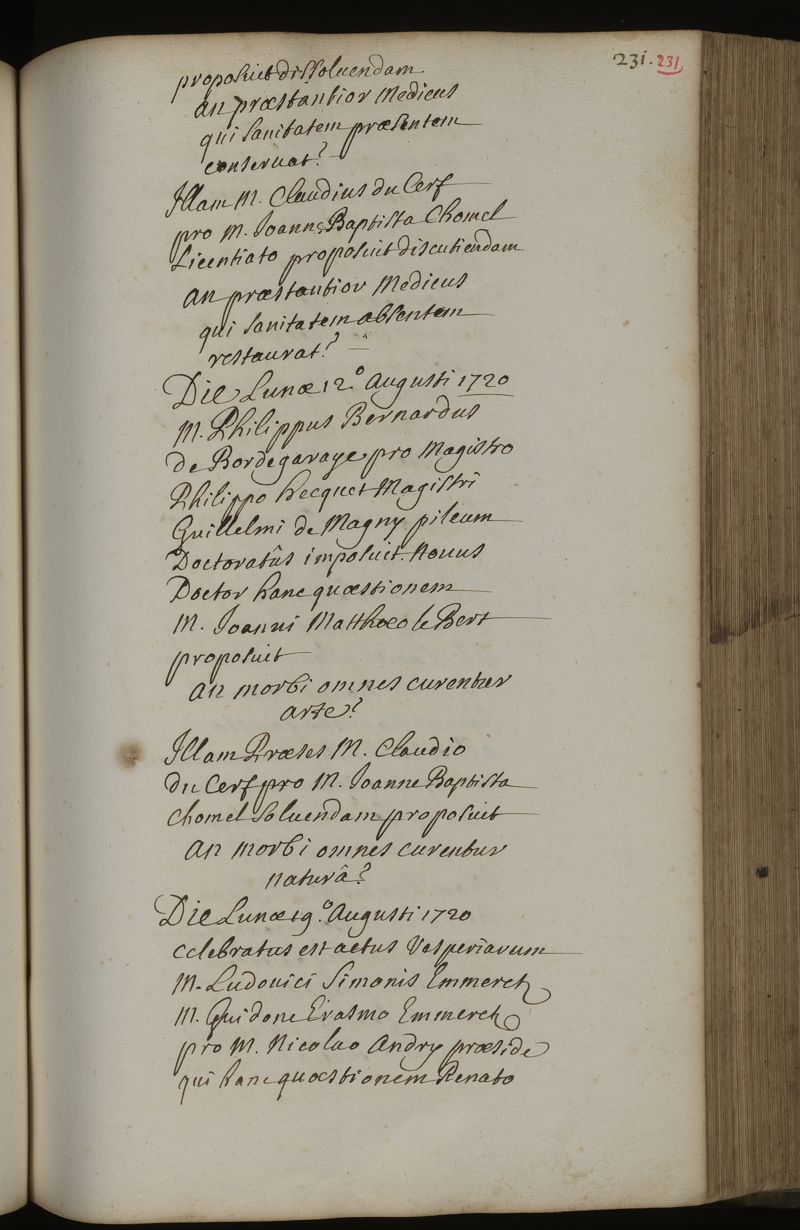 231. 231
proposuit dissoluendam
an præstantior Medicus
qui sanitatem præsentem
conseruat?
Illam M. Claudius du Cerf
pro M. Joanne Baptista Chomel
Licentiato proposuit discutiendam
an præstantior Medicus
qui sanitatem absentem
restaurat?
Die Lunæ 12.° Augusti 1720
M. Philippus Bernardus
de Bordegaraye pro Magistro
Philippo hecquet Magistri
Guillelmi de Magny pileum
Doctoratûs imposuit. Nouus
Doctor hanc quæstionem
M. Joanni Matthæo le Bert
proposuit
an morbi omnes curentur
arte?
Illam Præses M. Claudio
du Cerf pro M. Joanne Baptista
Chomel soluendam proposuit
an morbi omnes curentur
naturâ?
Die Lunæ 19.° Augusti 1720
celebratus est actus Vesperiarum
M. Ludouici Simonis Emmerch
M. Guidone Erasmo Emmerch
pro M. Nicolao Andry præside
qui hanc quæstionem Renato